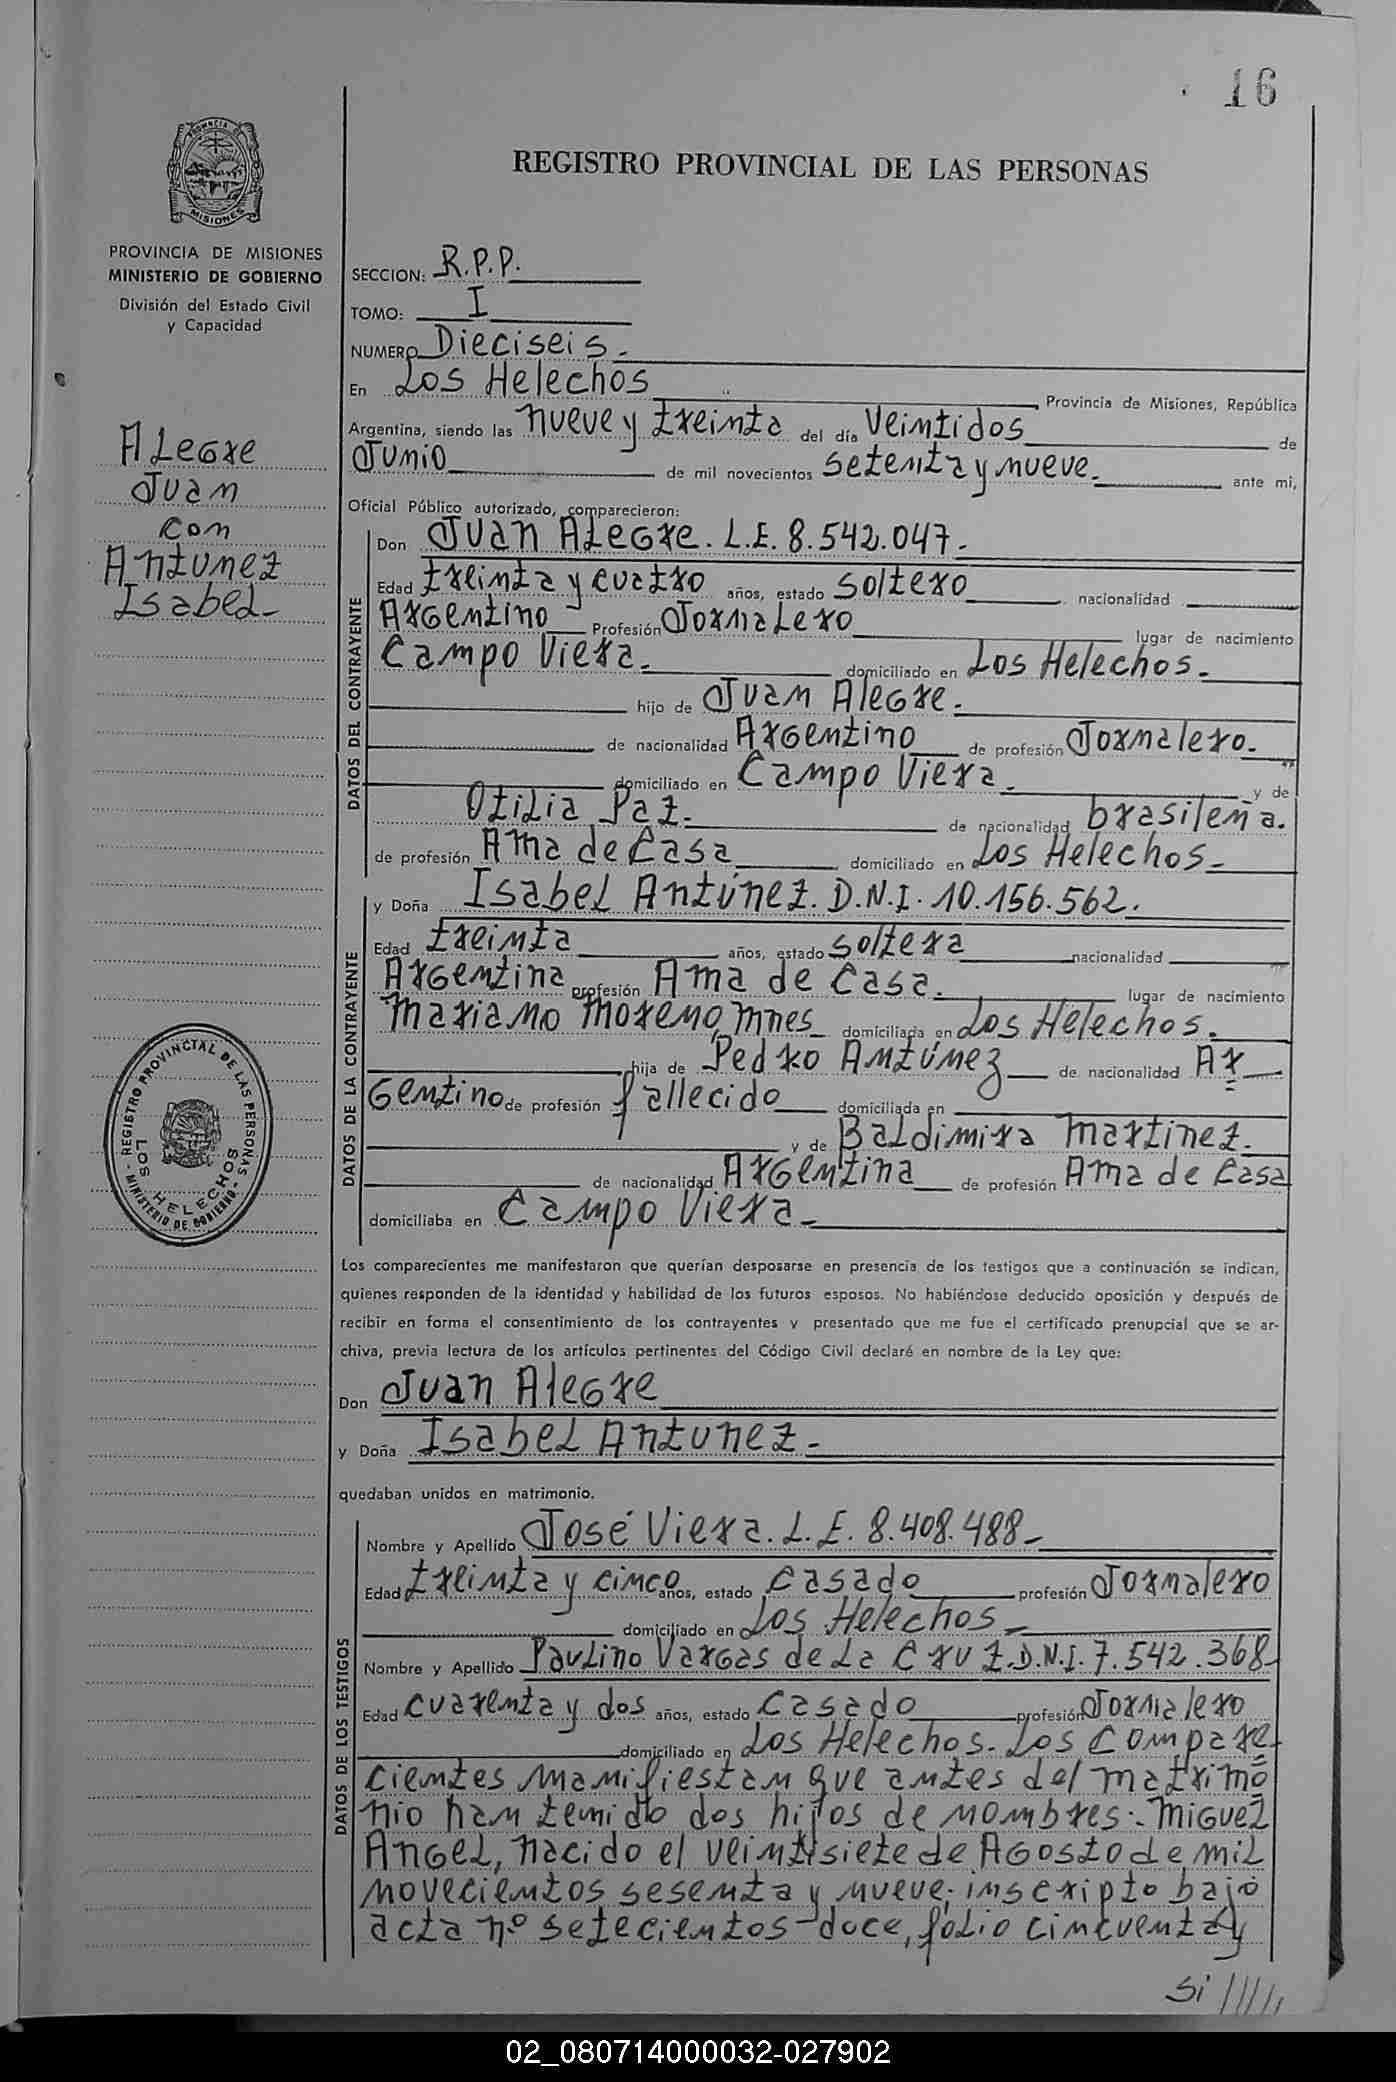 16
REGISTRO PROVINCIAL DE LAS PERSONAS
PROVINCIA DE MISIONES
PROVINCIA DE MISIONES
MINISTERIO DE GOBIERNO
División del Estado Civil
y Capacidad
Alegre
Juan
con
Antunez
Isabel-
REGISTRO PROVINCIAL DE LAS PERSONAS
LOS HELECHOS
- MINISTERIO DE GOBIERNO -
SECCION: R.P.P.
TOMO: I
NUMERO Dieciseis.
En Los Helechos Provincia de Misiones, República
Argentina, siendo las nueve y treinta del día veintidos de
Junio de mil novecientos setenta y nueve. ante mi,
Oficial Público autorizado, comparecieron:
DATOS DEL CONTRAYENTE
Don Juan Alegre. L.E. 8.542.047.
Edad treinta y cuatro años, estado soltero nacionalidad
Argentino Profesión Jornalero lugar de nacimiento
Campo Viera. domiciliado en Los Helechos.
hijo de Juan Alegre.
de nacionalidad Argentino de profesión Jornalero.
domiciliado en Campo Viera. y de
Otilia Paz. de nacionalidad brasileña.
de profesión Ama de Casa domiciliado en Los Helechos.
DATOS DE LA CONTRAYENTE
y Doña Isabel Antúnez. D.N.I. 10.156.562.
Edad treinta años, estado soltera nacionalidad
Argentina profesión Ama de Casa. lugar de nacimiento
Mariano Moreno, Mnes domiciliada en Los Helechos.
hija de Pedro Antúnez de nacionalidad Ar
gentino de profesión fallecido domiciliada en
y de Baldimira Martinez.
de nacionalidad Argentina de profesión Ama de Casa
domiciliaba en Campo Viera.
Los comparecientes me manifestaron que querían desposarse en presencia de los testigos que a continuación se indican,
quienes responden de la identidad y habilidad de los futuros esposos. No habiéndose deducido oposición y después de
recibir en forma el consentimiento de los contrayentes y presentado que me fue el certificado prenupcial que se ar-
chiva, previa lectura de los artículos pertinentes del Código Civil declaré en nombre de la Ley que:
Don Juan Alegre
y Doña Isabel Antunez.
quedaban unidos en matrimonio.
DATOS DE LOS TESTIGOS
Nombre y Apellido José Viera. L.E. 8.408.488
Edad treinta y cinco años, estado casado profesión Jornalero
domiciliado en Los Helechos
Nombre y Apellido Paulino Vargas de La Cruz. D.N.I. 7.542.368
Edad cuarenta y dos años, estado casado profesión Jornalero
domiciliado en Los Helechos. Los compare
cientes manifiestan que antes del matrimo
nio han tenido dos hijos de nombres: Miguel
Angel, nacido el veintisiete de Agosto de mil
novecientos sesenta y nueve; inscripto bajo
acta nº setecientos doce, folio cincuenta y
Si /////
02_080714000032-027902